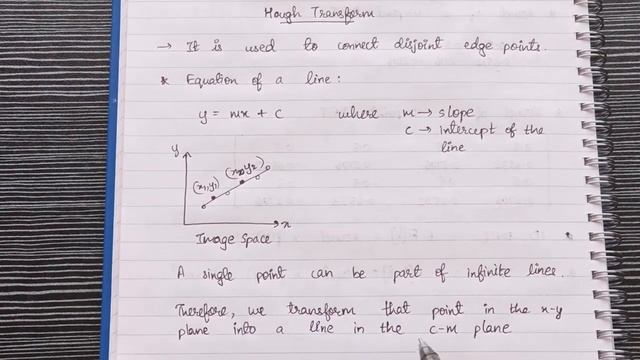 Hough Transform
→ It is used to connect disjoint edge points.
* Equation of a line:
y = mx + c where m → slope
c → intercept of the
line
y
(x₁,y₁) (x₂,y₂)
x
Image Space
A single point can be part of infinite lines.
Therefore, we transform that point in the x-y
plane into a line in the c-m plane